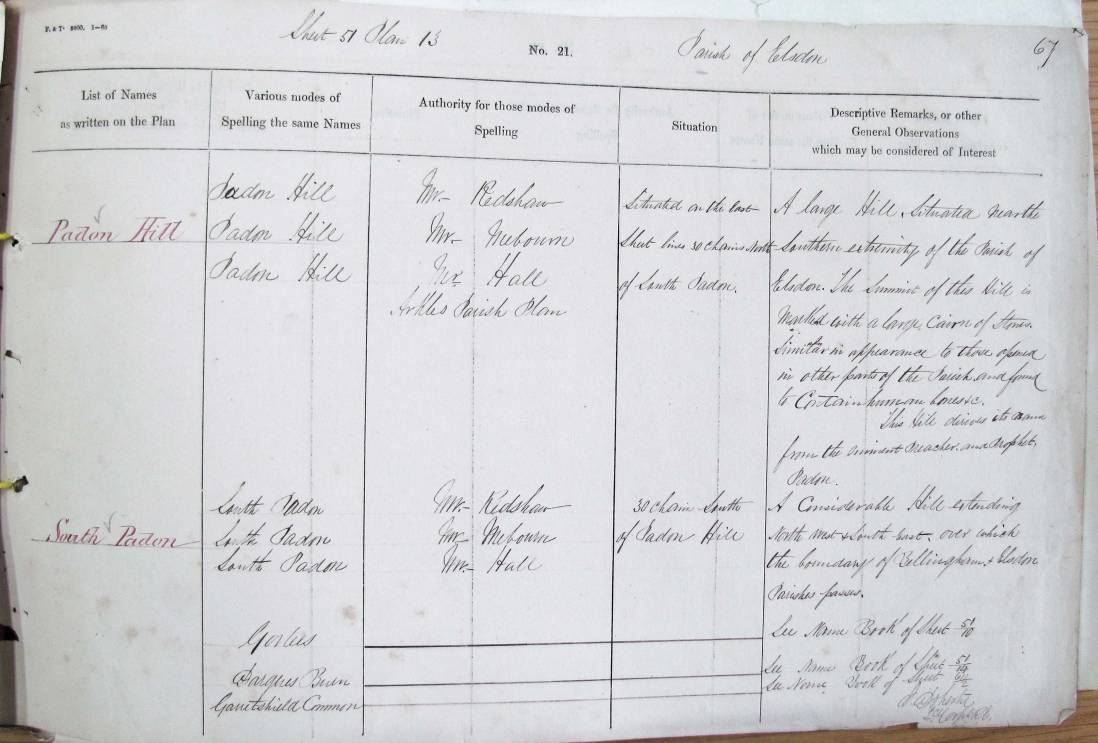 F. & T. 2000. 1—61
Sheet 51 Plan 13
No. 21.
Parish of Elsdon
67
List of Names
as written on the Plan
Various modes of
Spelling the same Names
Authority for those modes of
Spelling
Situation
Descriptive Remarks, or other
General Observations
which may be considered of Interest
Padon Hill
Padon Hill
Padon Hill
Padon Hill
Mr. Redshaw
Mr. Mebourn
Mr. Hall
Arkles Parish Plan
Situated on the East
Sheet lines 30 Chains North
of South Padon.
A large Hill Situated near the
Southern extremity of the Parish of
Elsdon. The Summit of this Hill is
Marked with a large Cairn of Stones.
Similar in appearance to those opened
in other parts of the Parish and found
to Contain human bones &c.
This Hill dirives its name
from the eminent Preacher and Prophet,
Padon.
South Padon
South Padon
South Padon
South Padon
Mr. Redshaw
Mr. Mebourn
Mr. Hall
30 Chain South
of Padon Hill
A Considerable Hill extending
North West & South East, over which
the boundary of Bellingham & Elsdon
Parishes passes.
Gorless
See Name Book of Sheet 51/10
Dargues Burn
See Name Book of Sheet 51/14
Garretshield Common
See Name Book of Sheet